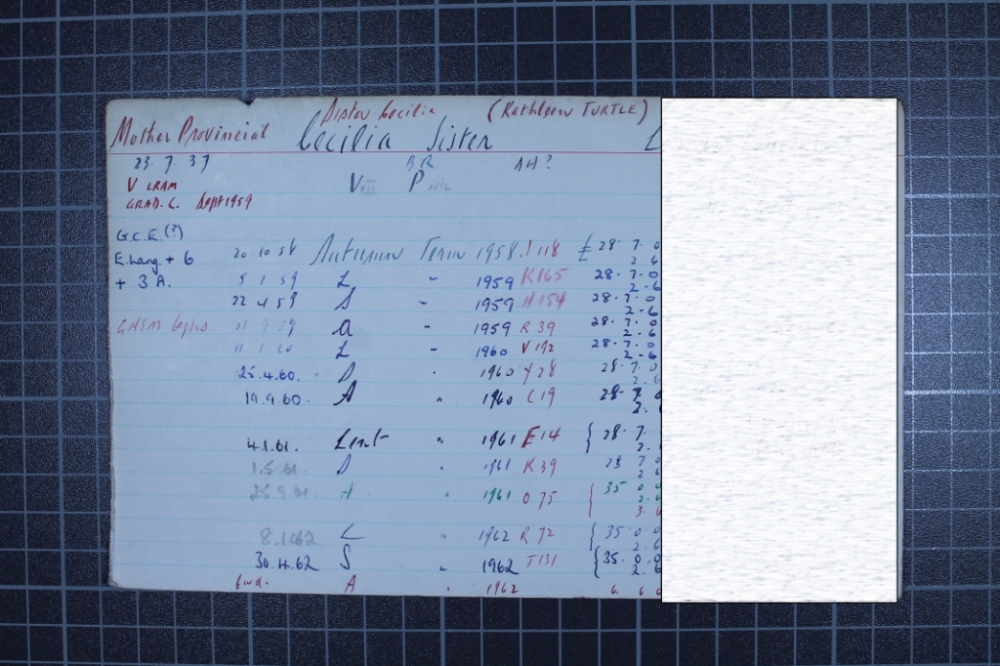 Sister Cecilia (Kathleen TURTLE)
Mother Provincial Cecilia Sister L
23 7 37 B.R AH?
V LRAM V viii P
GRAD. C. Sept 1959
G.C.E.(?)
E.Lang. + 6 20 10 58 Autumn Term 1958 J 118 £ 28. 7. 0
2 6
+ 3 A. 5 1 59 L " 1959 K165 28. 7. 0
2 - 6
22 4 59 S " 1959 N 154 28. 7. 0
2 - 6
GNSM begins 21 9 59 A " 1959 R 39 28. 7. 0
2 - 6
11 1 60 L " 1960 V 192 28. 7. 0
2 - 6
25.4.60. S " 1960 Y 28 28. 7. 0
2. 6
19.9.60. A " 1960 C 19 28. 7. 0
2.
4.1.61. Lent " 1961 E 14 { 28. 7.
2.
1.5.61. S " 1961 K 39 28 7 0
2 6
25.9.61. A " 1961 O 75 { 35 0 0
2. 6
3. 6
8.1.62 L " 1962 R 72 { 35. 0. 0
2. 6
30.4.62 S " 1962 T 131 { 35. 0. 0
2. 6
fwd. A " 1962 6. 6